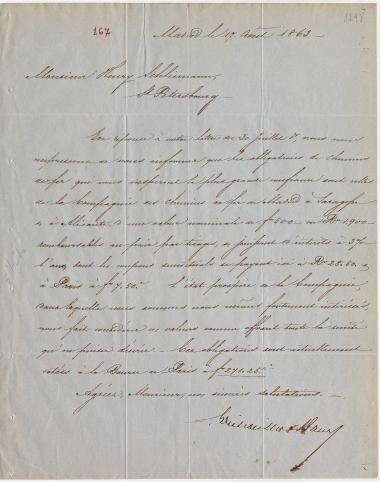 167
1298
Madrid le 17 Août 1863 -
Monsieur Henry Schliemann,
St Petersbourg -
En réponse à votre lettre du 30 juillet d., nous nous
empressons de vous informer que les obligations de chemins
de fer que nous inspirent la plus grande confiance sont celles
de la Compagnie des chemins de fer de Madrid à Saragosse
et à Alicante, d'une valeur nominale de f 500 - ou Rn 1,900
remboursables au pair par tirages, et jouissant d'intérêts à 3%
l'an, dont les coupons semestriels se payent ici à Rn 28.50 et
à Paris à f 7.50. L'état prospère de la Compagnie,
dans laquelle nous sommes nous mêmes fortement intéressés,
nous fait considérer ces valeurs comme offrant toute la sûreté
qu'on puisse désirer - Ces obligations sont actuellement
cotées à la Bourse de Paris à f 271.25 -
Agréez, Monsieur, nos sincères salutations. -